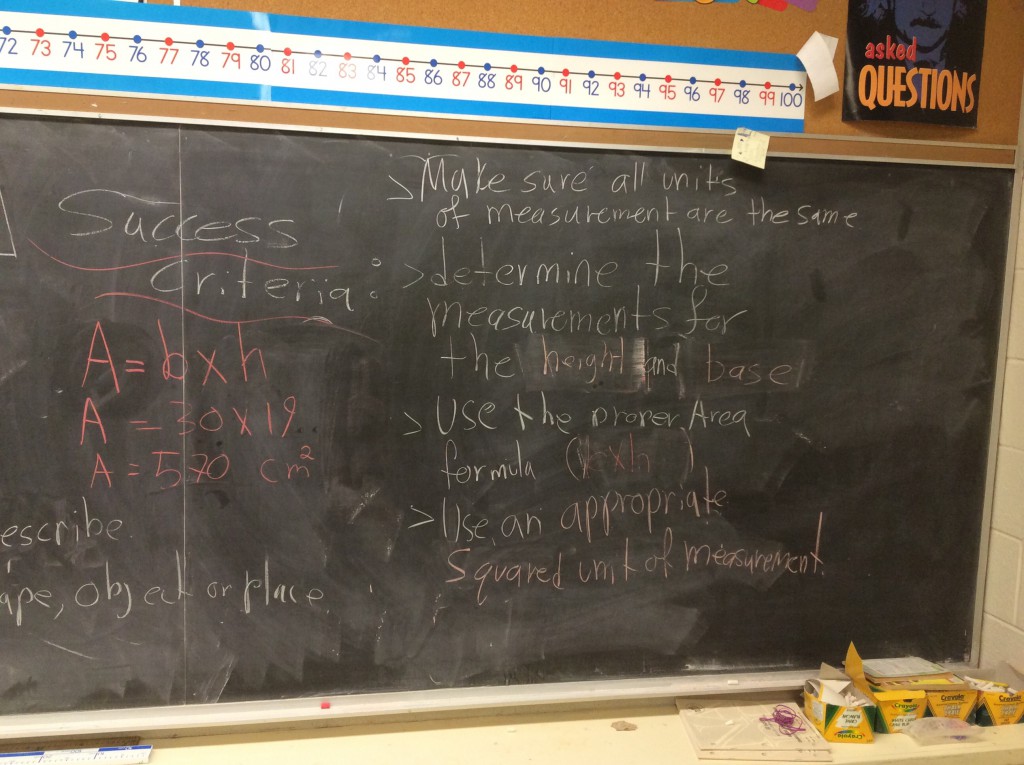 72 73 74 75 76 77 78 79 80 81 82 83 84 85 86 87 88 89 90 91 92 93 94 95 96 97 98 99 100
asked
QUESTIONS
Success
Criteria:
A = b x h
A = 30 x 19
A = 570 cm²
escribe
ape, object or place
> Make sure all units
of measurement are the same
> determine the
measurements for
the height and base
> Use the proper Area
formula (bxh)
> Use an appropriate
Squared unit of measurement.
Crayola
Crayola
Crayola